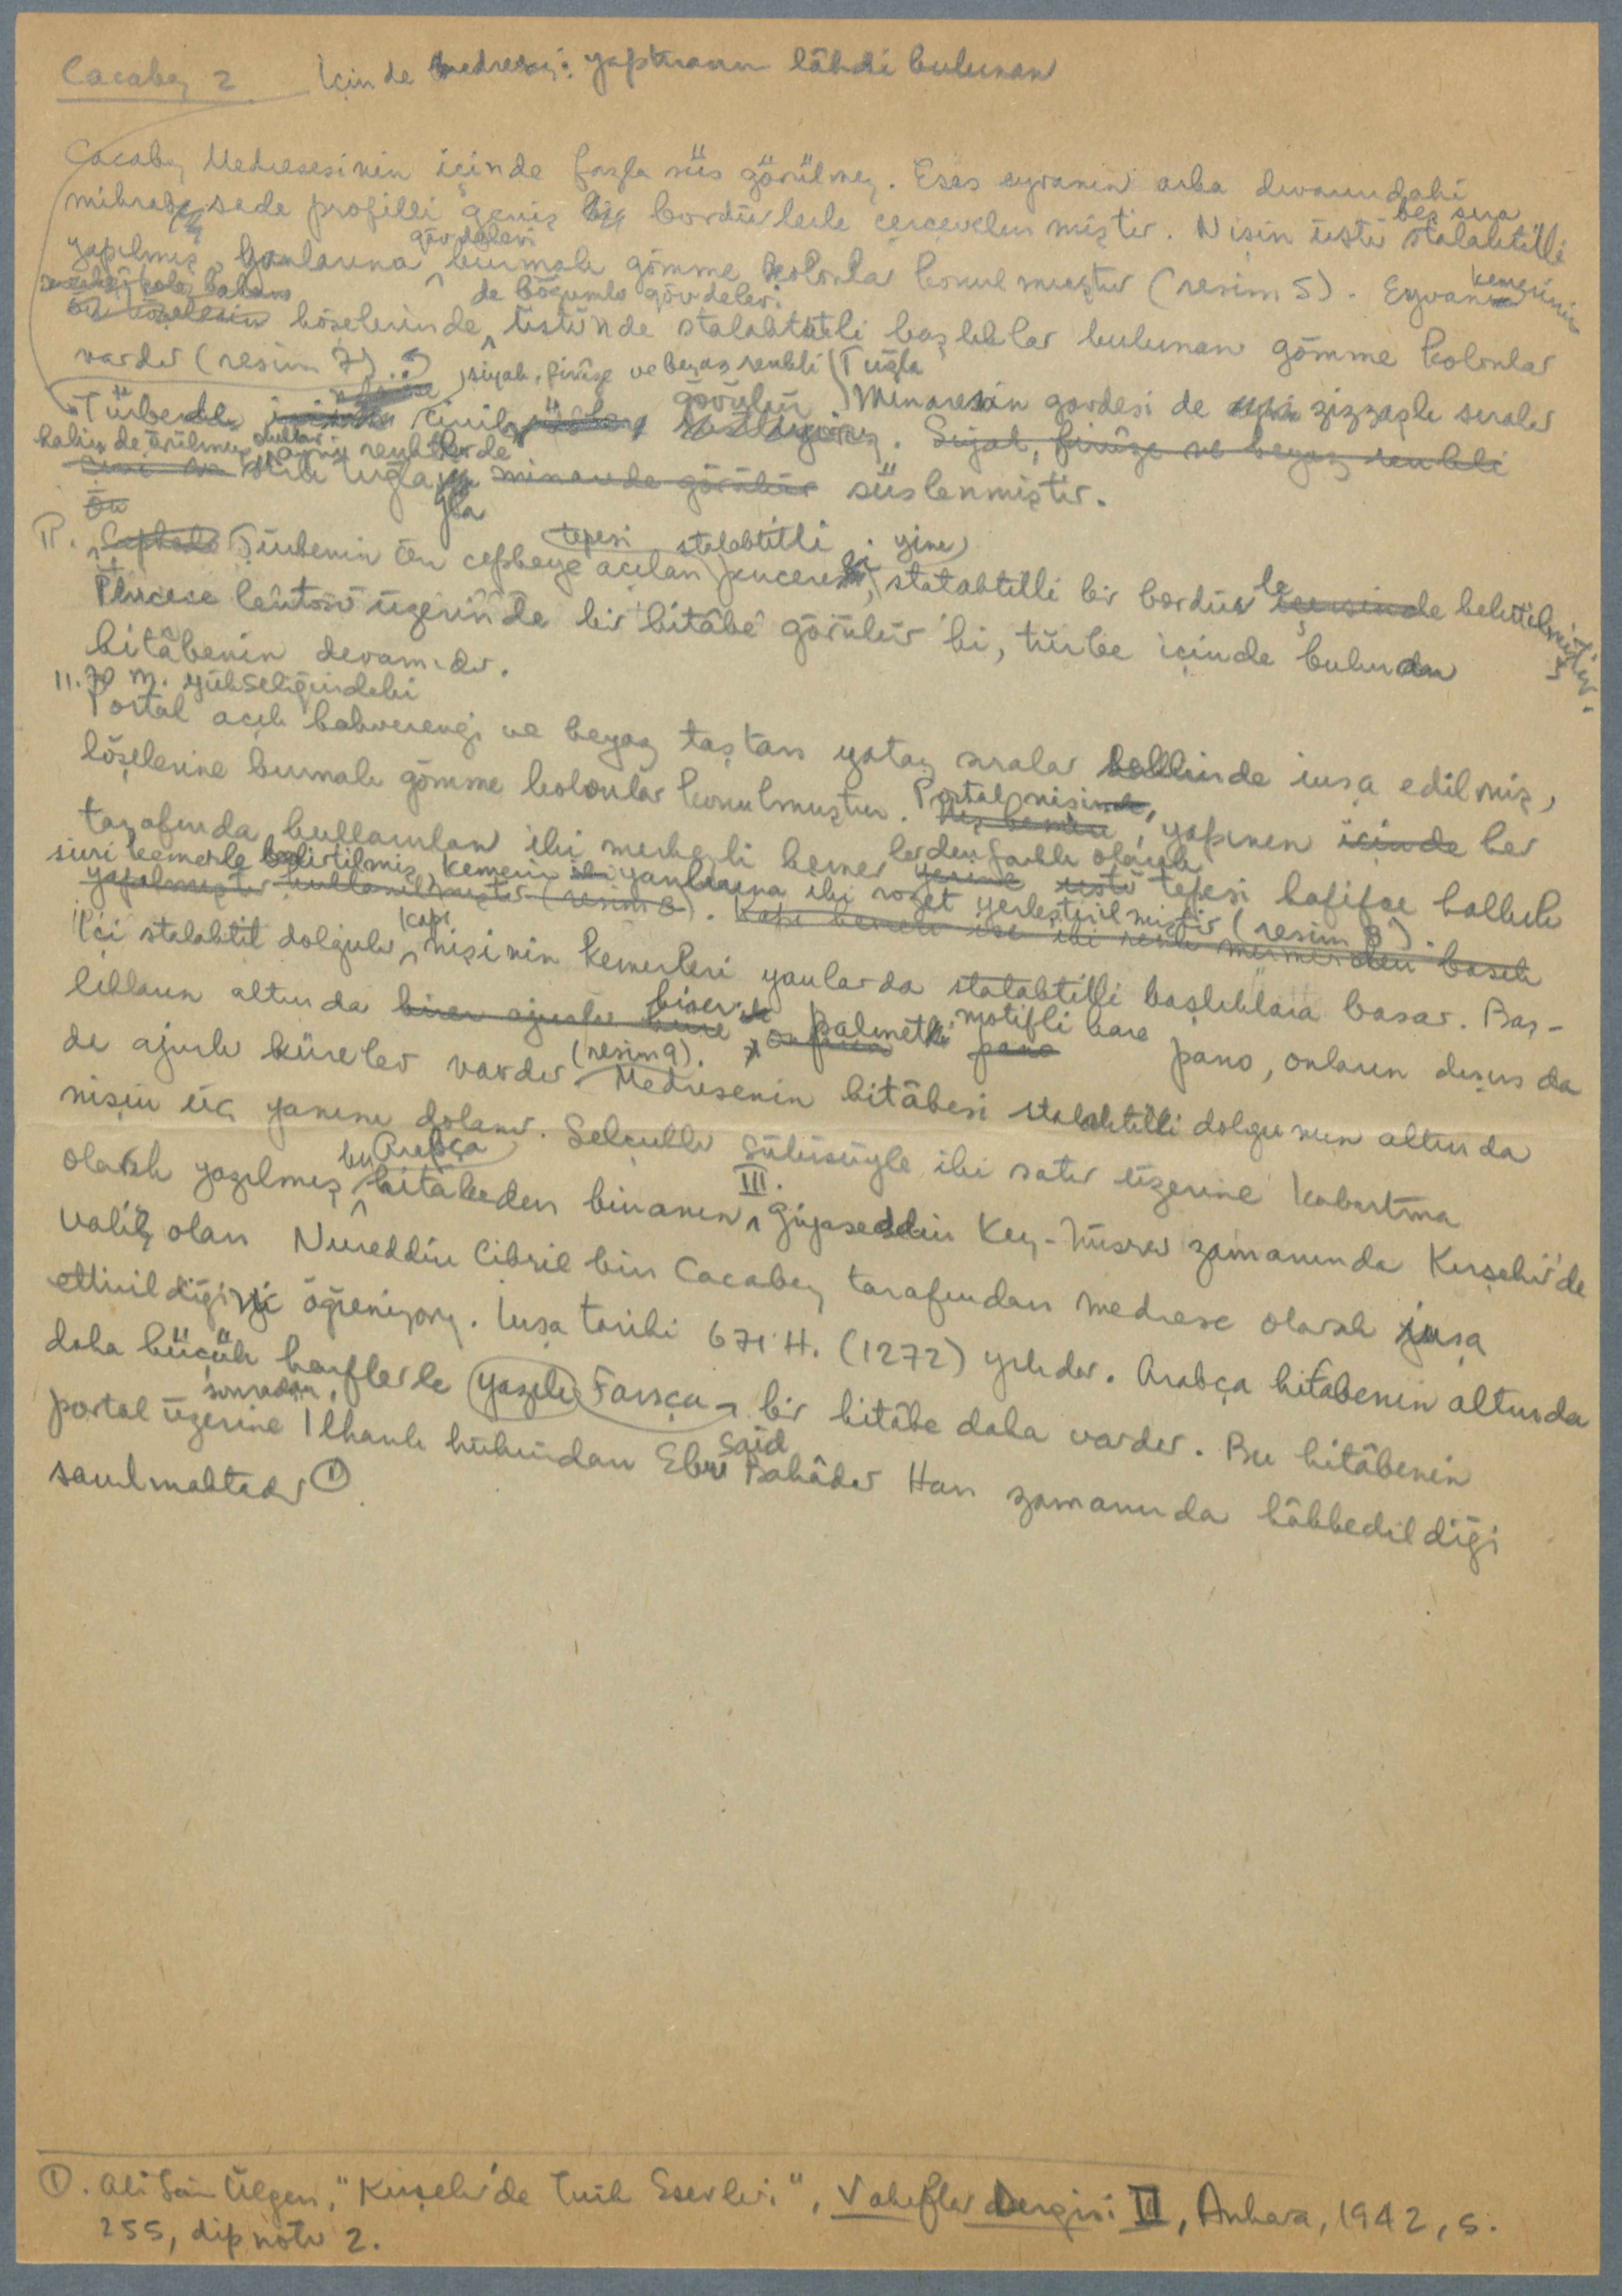 Cacabey 2 İçinde medreseyi yaptıranın lâhdi bulunan
Cacabey Medresesinin içinde fazla süs görülmez. Esas eyvanın arka duvarındaki
mihrabı, sade profilli geniş bordürlerle çerçevelenmiştir. Nişin üstü beş sıra stalaktitli
yapılmış, yanlarına gövdeleri burmalı gömme kolonlar konulmuştur (resim 5). Eyvanın kemerinin
köşelerinde de boğumlu gövdeleri üstünde stalaktitli başlıklar bulunan gömme kolonlar
vardır (resim 7).
Türbede siyah, firûze ve beyaz renkli çini görülür. Tuğla Minarenin gövdesi de zigzaglı sıralar
halinde örülmüş aynı renklerde sırlı tuğlayla minarede görülür süslenmiştir. Siyah, firûze ve beyaz renkli
Ön
P. Cephede Türbenin ön cepheye açılan tepesi stalaktitli penceresi, yine stalaktitli bir bordürle belirtilmiştir.
Pencere lentosu üzerinde bir kitâbe görülür ki, türbe içinde bulunan
kitâbenin devamıdır.
11.70 m. yüksekliğindeki
Portal açık kahverengi ve beyaz taştan yatay sıralar halinde inşa edilmiş,
köşelerine burmalı gömme kolonlar konulmuştur. Portal nişinde, yapının içinde her
tarafında kullanılan iki merkezli kemerlerden farklı olarak yerine üstü tepesi hafifçe kalkık
sivri kemerle belirtilmiş, kemerin yanlarına iki rozet yerleştirilmiştir (resim 8).
yapılmıştır kullanılmıştır (resim 8). Kapı kemeri ise iki renkli mermerden basık
İçi stalaktit dolgulu kapı nişinin kemerleri yanlarda stalaktitli başlıklara basar. Baş-
lıkların altında birer ajurlu küre birer palmet motifli kare pano, onların dışında
da ajurlu küreler vardır (resim 9). Medresenin kitâbesi stalaktitli dolgunun altında
nişin üç yanını dolanır. Selçuklu sülüsüyle iki satır üzerine kabartma
olarak yazılmış bu Arapça kitabeden binanın III. Gıyaseddin Key-Hüsrev zamanında Kırşehir'de
vali olan Nûreddin Cibril bin Cacabey tarafından medrese olarak inşa
ettirildiğini öğreniyoruz. İnşa tarihi 671 H. (1272) yılıdır. Arabça kitabenin altında
daha küçük harflerle yazılı Farsça bir kitâbe daha vardır. Bu kitâbenin
portal üzerine sonradan, İlhanlı hükümdarı Ebu Said Bahâdır Han zamanında hâkkedildiği
sanılmaktadır ①.
①. Ali Saim Ülgen, "Kırşehir'de Türk Eserleri", Vakıflar Dergisi II, Ankara, 1942, s.
255, dipnotu 2.